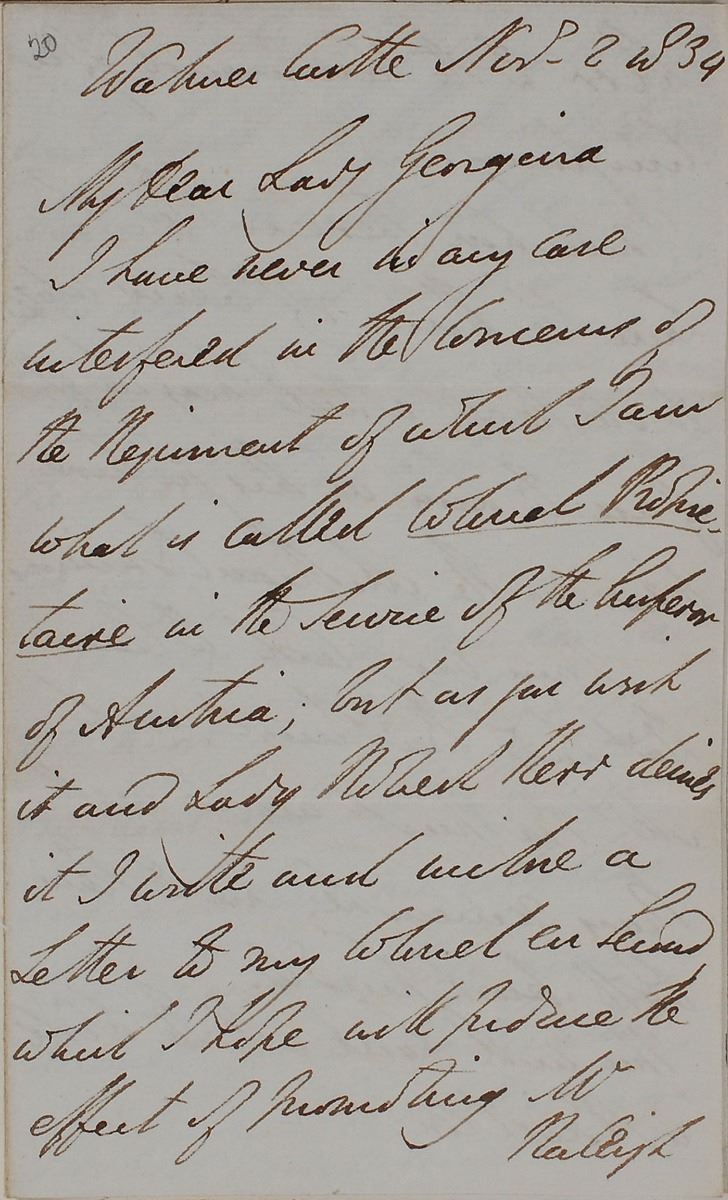 20
Walmer Castle Nov. 2 1834
My Dear Lady Georgina
I have never in any case
interfered in the Concerns of
the Regiment of which I am
what is called Colonel Proprie-
taire in the Service of the Emperor
of Austria; but as you wish
it and Lady Robert Kerr desires
it I write and enclose a
Letter to my Colonel en Second
which I hope will produce the
effect of promoting Mr
Raleigh